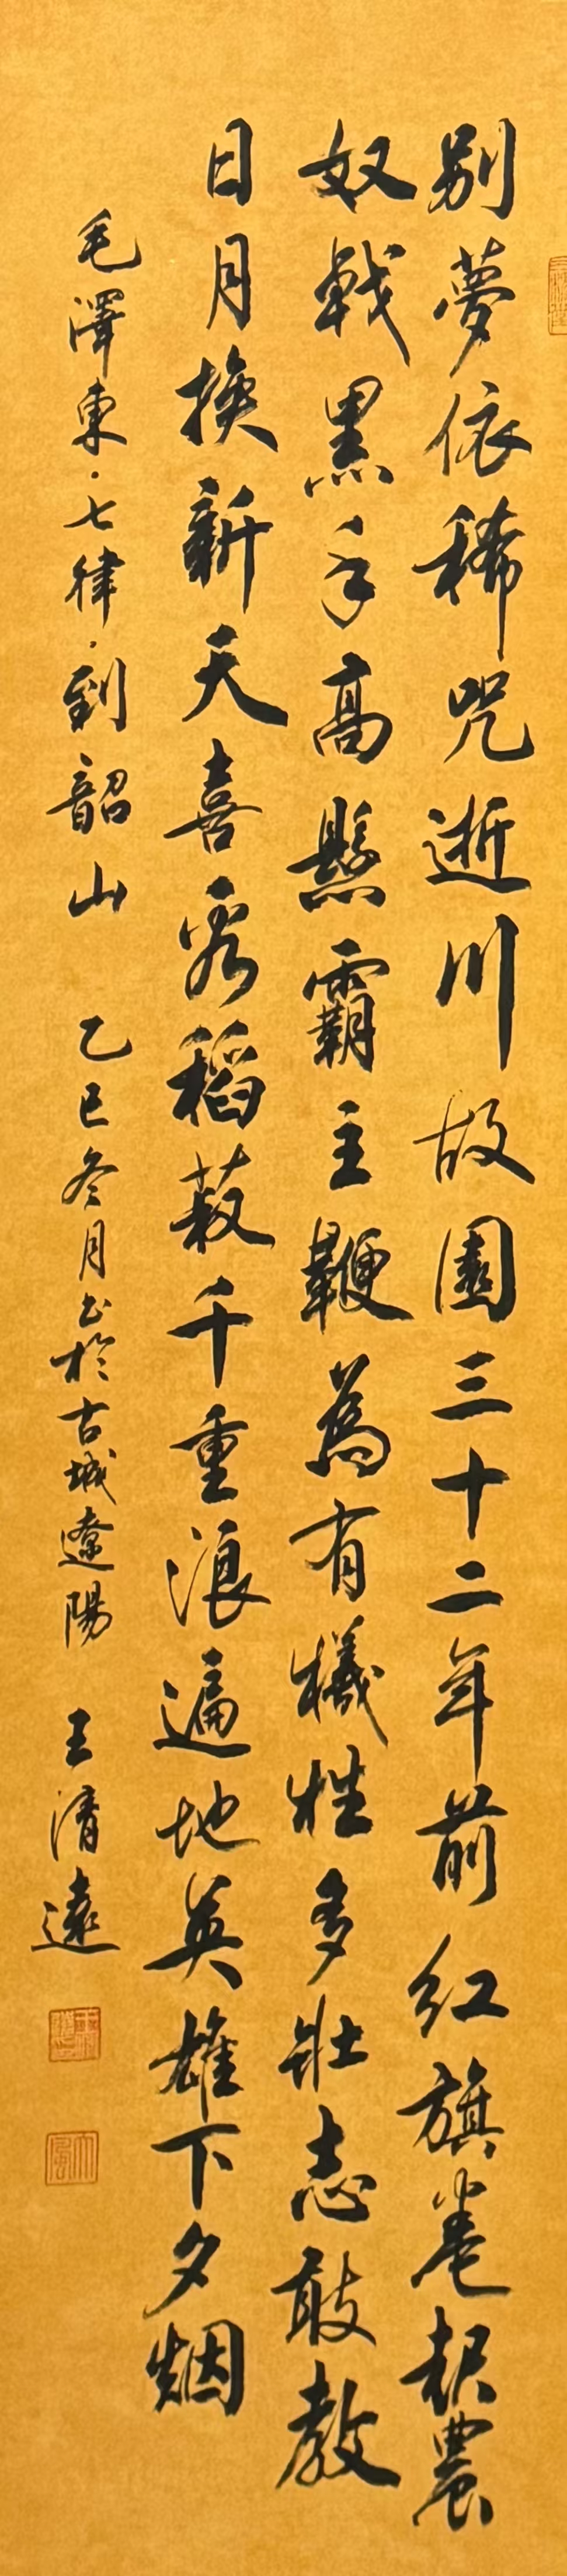 别夢依稀咒逝川故園三十二年前红旗卷起農
奴戟黑手高懸霸主鞭為有犧牲多壮志敢教
日月换新天喜看稻菽千重浪遍地英雄下夕烟
毛澤東·七律·到韶山 乙巳冬月书於古城遼陽 王清遠